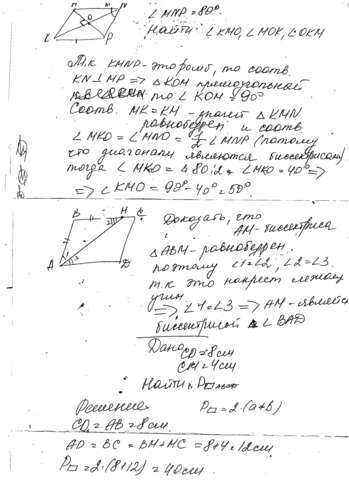 ∠MNP=80°.
Найти ∠KMO, ∠MOK, ∠OKM
Т.к. KMNP-это ромб, то соотв.
KN⊥MP => △KOM прямоугольный
∠KOM=90°
Соотв. MK=KH- значит △KMN
равнобедрен, и соотв.
∠MKO=∠MNO=½∠MNP (потому
что диагонали являются биссектрисами)
тогда ∠MKO= 80:2 ∠MKO=40° =>
=> ∠KMO=90°-40°=50°.
Доказать, что
AM-биссектриса
△ABM-равнобедрен.
поэтому ∠1=∠2, ∠2=∠3.
т.к это накрест лежащ
угли
=> ∠1=∠3 => AM-являет
биссектрисой ∠BAD
Дано
CD=8см
CM=4см
Найти P
Решение P□=2·(a+b)
CD=AB=8см.
AD=BC=BM+MC=8+4=12см
P□=2·(8+12)=40см.